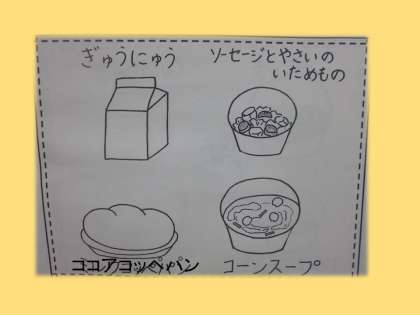 ぎゅうにゅう
ソーセージとやさいの
いためもの
ココアコッペパン
コーンスープ